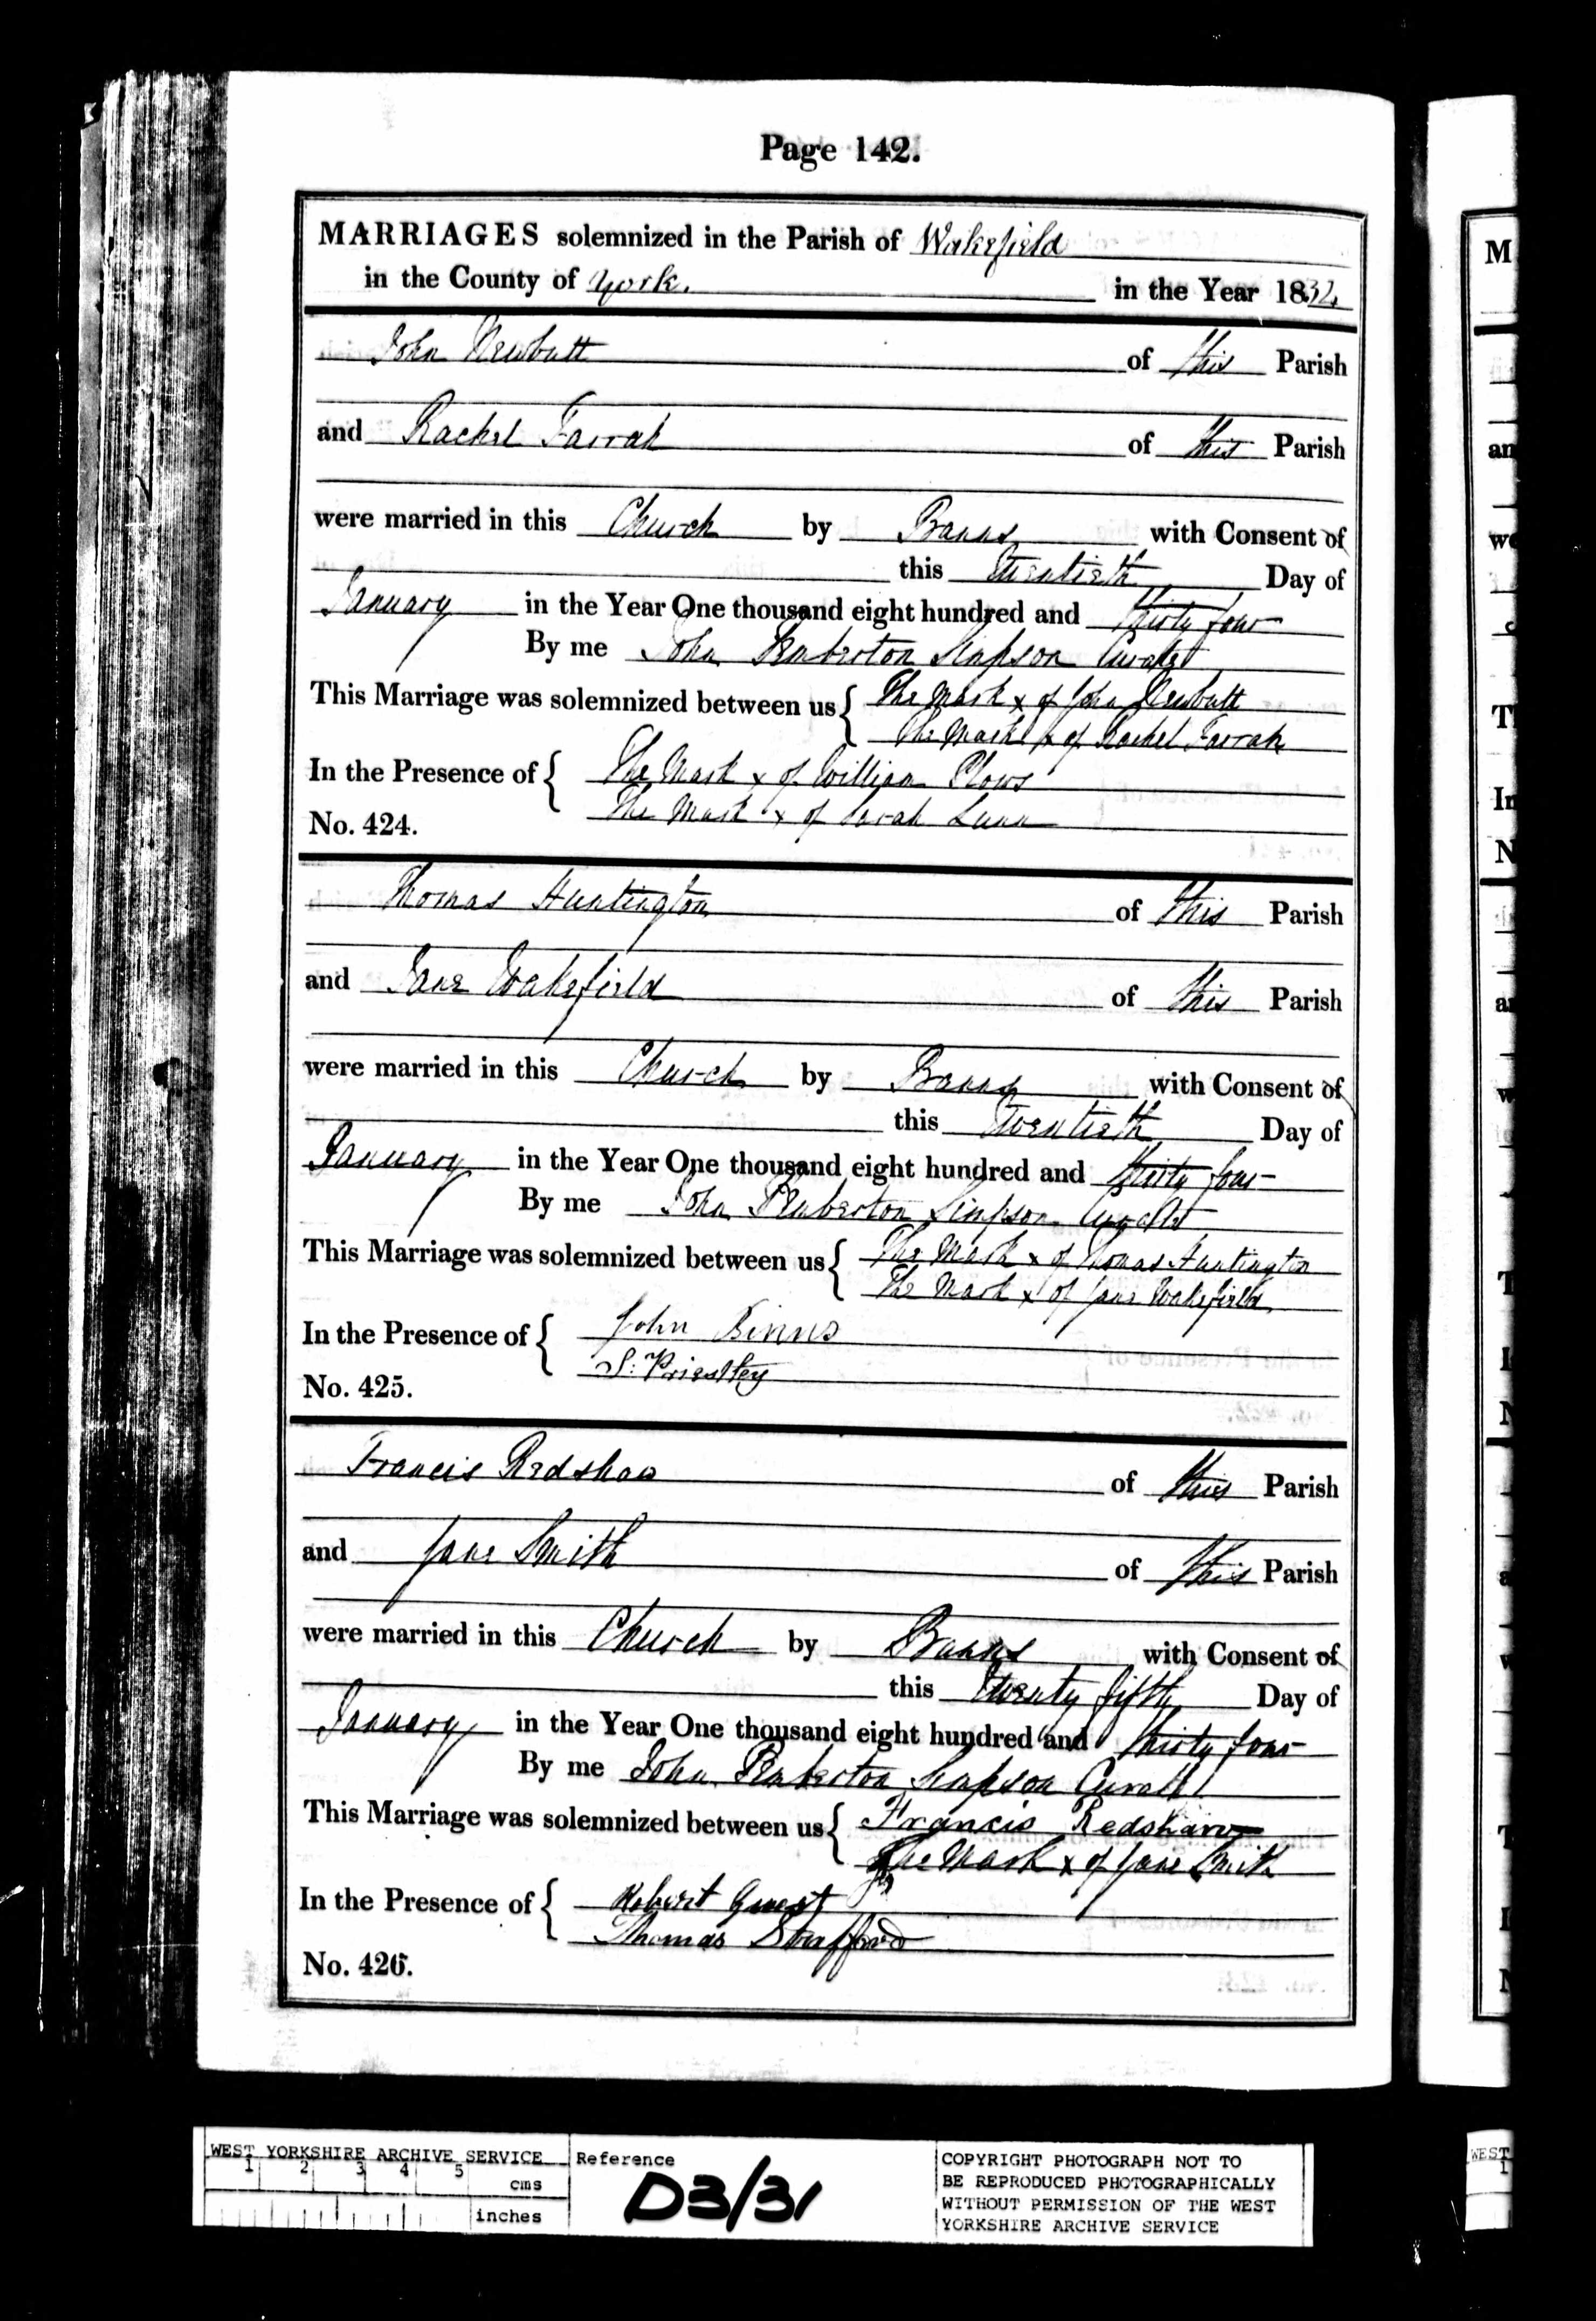 Page 142.
MARRIAGES solemnized in the Parish of Wakefield
in the County of York. in the Year 1834
John Newbutt of this Parish
and Rachel Farrah of this Parish
were married in this Church by Banns with Consent of
this Twentieth Day of
January in the Year One thousand eight hundred and thirty four
By me John Pemberton Simpson Curate
This Marriage was solemnized between us { The Mark x of John Newbutt
The Mark x of Rachel Farrah
In the Presence of { The Mark x of William Plows
The Mark x of Sarah Lunn
No. 424.
Thomas Huntington of this Parish
and Jane Wakefield of this Parish
were married in this Church by Banns with Consent of
this Twentieth Day of
January in the Year One thousand eight hundred and thirty four
By me John Pemberton Simpson Curate
This Marriage was solemnized between us { The Mark x of Thomas Huntington
The Mark x of Jane Wakefield
In the Presence of { John Binns
S: Priestley
No. 425.
Francis Redshaw of this Parish
and Jane Smith of this Parish
were married in this Church by Banns with Consent of
this Twenty fifth Day of
January in the Year One thousand eight hundred and thirty four
By me John Pemberton Simpson Curate
This Marriage was solemnized between us { Francis Redshaw
The Mark x of Jane Smith
In the Presence of { Robert Guest
Thomas Stafford
No. 426.
WEST YORKSHIRE ARCHIVE SERVICE
1 2 3 4 5
cms
inches
Reference
D3/31
COPYRIGHT PHOTOGRAPH NOT TO
BE REPRODUCED PHOTOGRAPHICALLY
WITHOUT PERMISSION OF THE WEST
YORKSHIRE ARCHIVE SERVICE
WEST
1